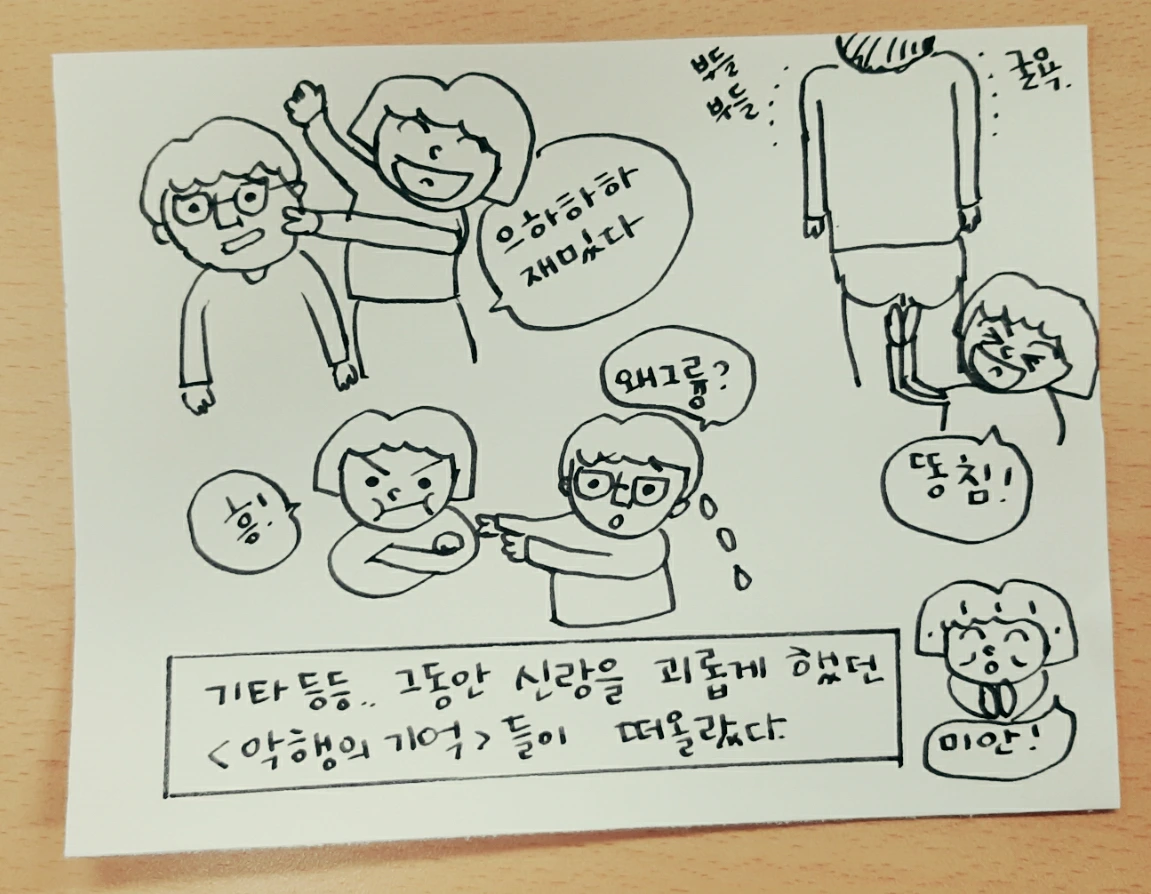 으하하하
재밌다
부들
부들
굴욕.
왜그륭?
흥!
똥침!
기타 등등.. 그동안 신랑을 괴롭게 했던
<악행의 기억> 들이 떠올랐다.
미안!